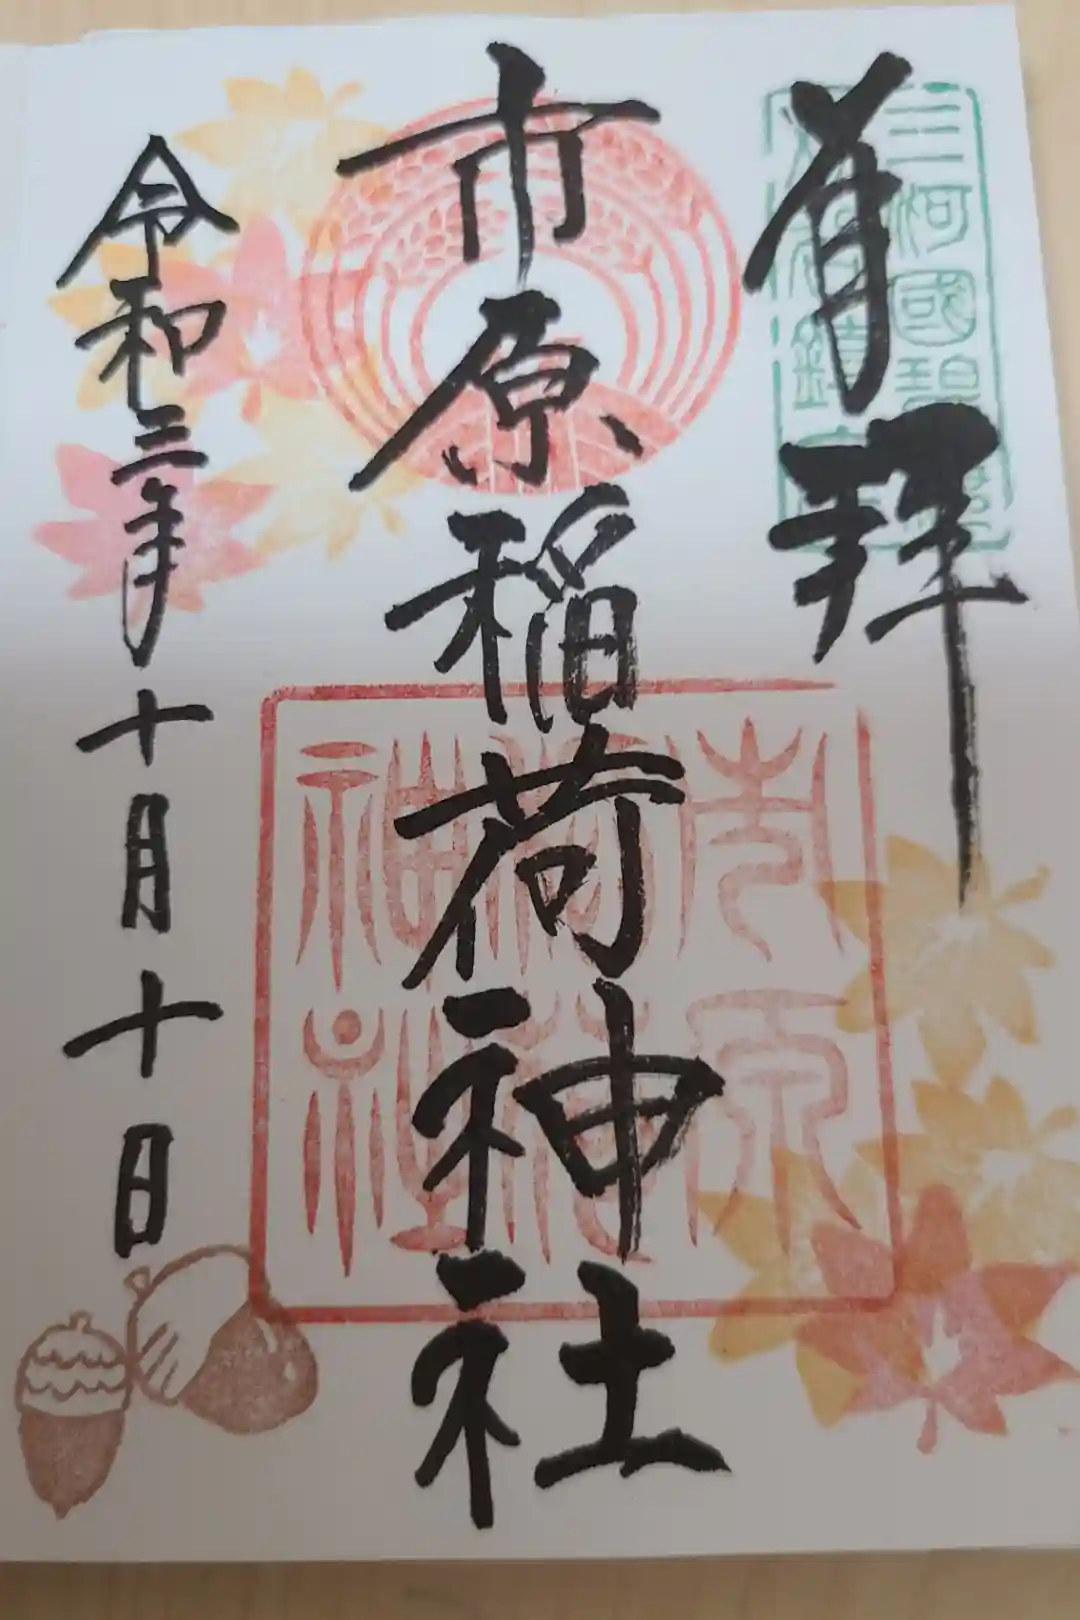 奉拝
三河國碧
市原稲荷神社
市原
稲荷
神社
令和三年十月十日